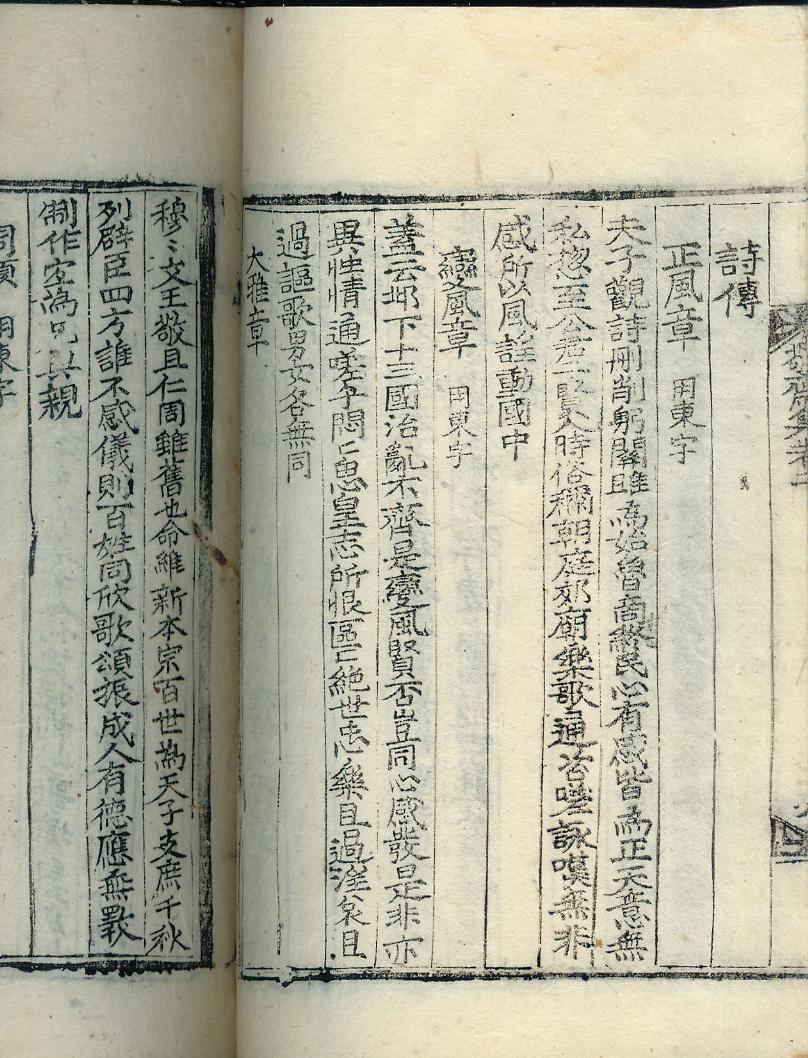 詩傳
正風章 用東字
夫子觀詩刪削躬關雎為始魯商終民心有感皆為正天意無
私揔至公君賢臣良時俗穪朝庭郊廟樂歌通咨嗟詠嘆無非
感所以風謠動國中
變風章 用東字
蓋云邶下十三國治亂不齊是變風賢否豈同心感發是非亦
異性情通嗟乎悶〻思皇志所恨區〻絕世忠樂且過淫哀且
過謳歌男女各無同
大雅章
穆〻文王敬且仁周雖舊也命維新本宗百世為天子支庶千秋
列辟臣四方誰不感儀則百姓同欣歌頌振成人有德應無斁
制作定為兄其親
周頌 用東字